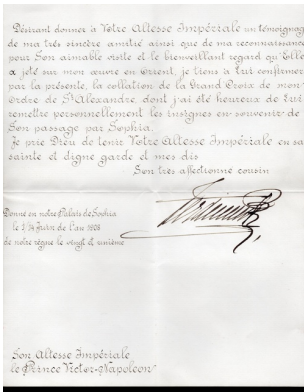 Désirant donner à Votre Altesse Impériale un témoignage
de ma très sincère amitié ainsi que de ma reconnaissance
pour Son aimable visite et le bienveillant regard qu'Elle
a jeté sur mon œuvre en Orient, je tiens à Lui confirmer
par la présente, la collation de la Grand Croix de mon
Ordre de St Alexandre, dont j'ai été heureux de Lui
remettre personnellement les insignes en souvenir de
Son passage par Sophia.
Je prie Dieu de tenir Votre Altesse Impériale en sa
sainte et digne garde et me dis
Son très affectionné cousin
Donné en notre Palais de Sophia
le 1/14 Juin de l'an 1908
de notre règne le vingt et unième
Son Altesse Impériale
le Prince Victor-Napoléon